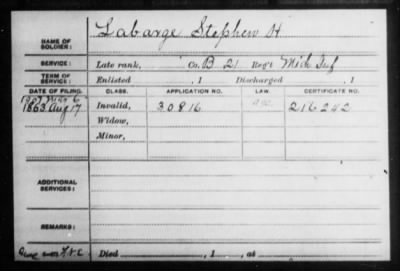 NAME OF SOLDIER: Labarge Stephen H.
SERVICE: Late rank, Co. B 21 Reg't Mich Inf
TERM OF SERVICE: Enlisted , 1 Discharged , 1
DATE OF FILING. CLASS. APPLICATION NO. LAW. CERTIFICATE NO.
1863 Aug 17 Invalid, 30816 216242
Widow,
Minor,
ADDITIONAL SERVICES:
REMARKS:
Died , 1 , at